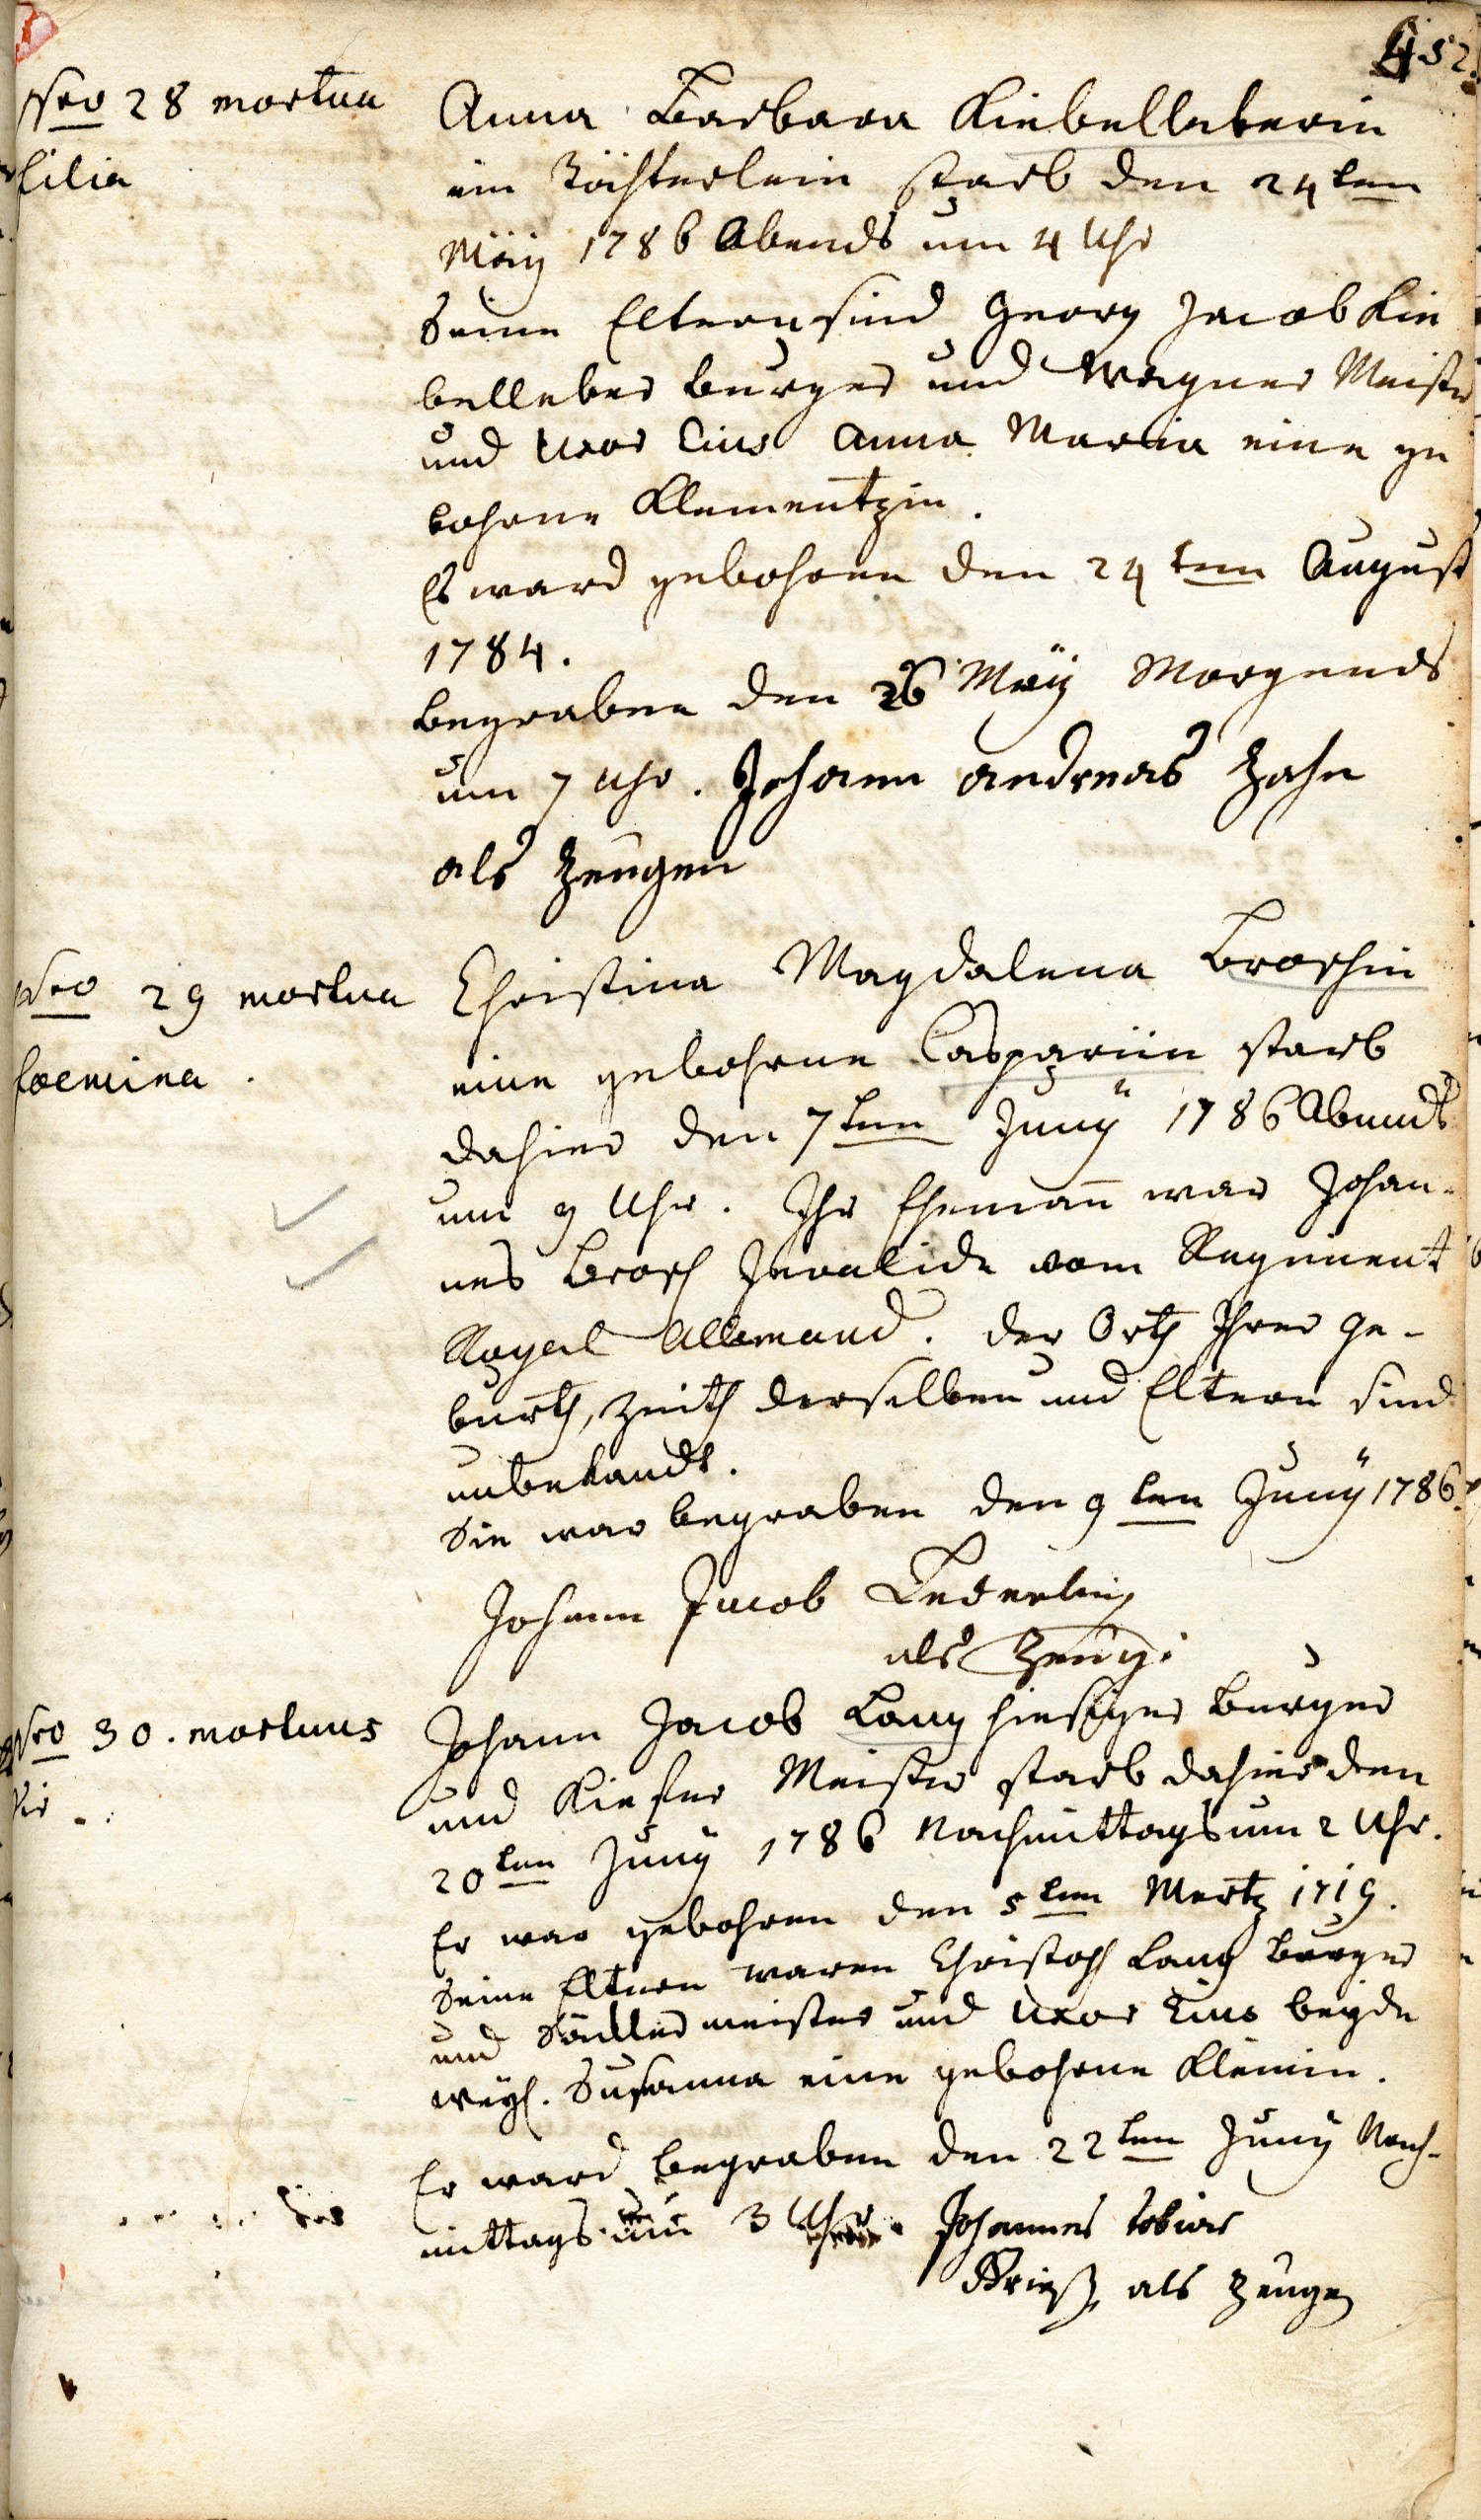 452.
Nro 28 mortua
filia
Anna Barbara Kiebelleberin
ein Töchterlein starb den 24ten
Mäÿ 1786 Abends um 4 Uhr
Seine Eltern sind Georg Jacob Kie
belleber Burger und Wagner Meister
und Uxor Eius Anna Maria eine ge
bohrne Klementzin.
Es ward gebohren den 24ten August
1784.
begraben den 26 Maÿ Morgends
um 7 Uhr. Johann andreas Zahn
als Zeugen
Nro 29 mortua
foemina.
Christina Magdalena Broschin
eine gebohrne Caspariin starb
dahier den 7ten Junÿ 1786 Abends
um 9 Uhr. Ihr Ehemañ war Johan-
nes Brosch Invalide vom Regiment
Royal Allemand. der Orth Ihrer ge-
burth, Zeith derselben und Eltern sind
unbekandt.
Sie war begraben den 9ten Junÿ 1786.
Johann Jacob
als Zeug.
Nro 30. mortuus
Vir.
Johann Jacob Lang hiesiger Burger
und Kiefer Meister starb dahier den
20ten Junÿ 1786 Nachmittags um 2 Uhr.
Er war gebohren den 5ten Mertz 1719.
Seine Eltern waren Christoph Lang Burger
und Sattler meister und Uxor Eius beyde
weyl. Susanna eine gebohrne Klemin.
Er ward begraben den 22ten Junÿ Nach-
mittags um 3 Uhr. Johannes tobias
Frieß als Zeuge